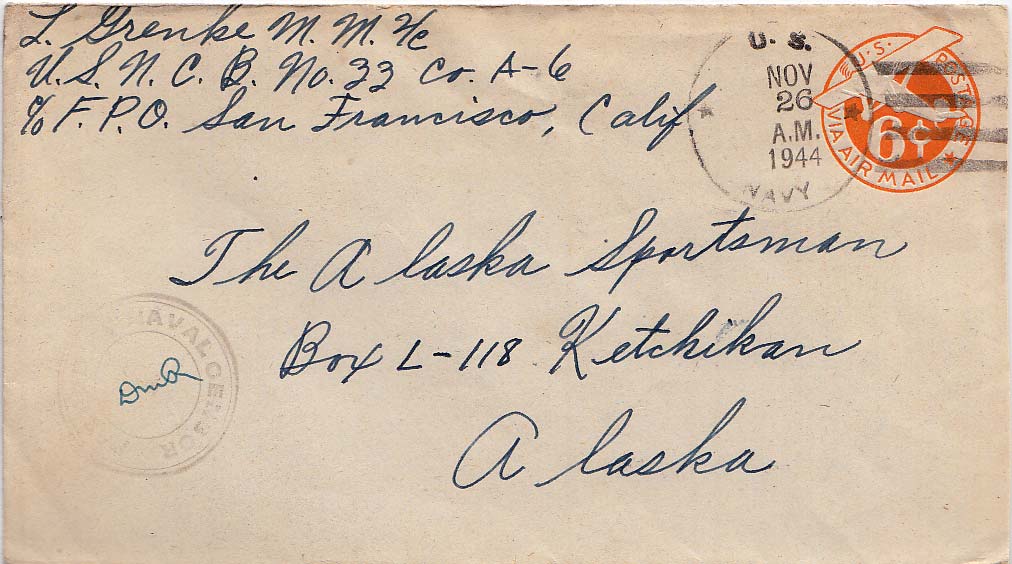 L. Grenke M. M. 1/c
U. S. N. C. B. No. 33 Co. A-6
c/o F. P. O. San Francisco, Calif.
U. S.
NOV
26
A.M.
1944
NAVY
U.S. POSTAGE
6¢
VIA AIR MAIL
The Alaska Sportsman
Box L-118 Ketchikan
Alaska
NAVAL CENSOR